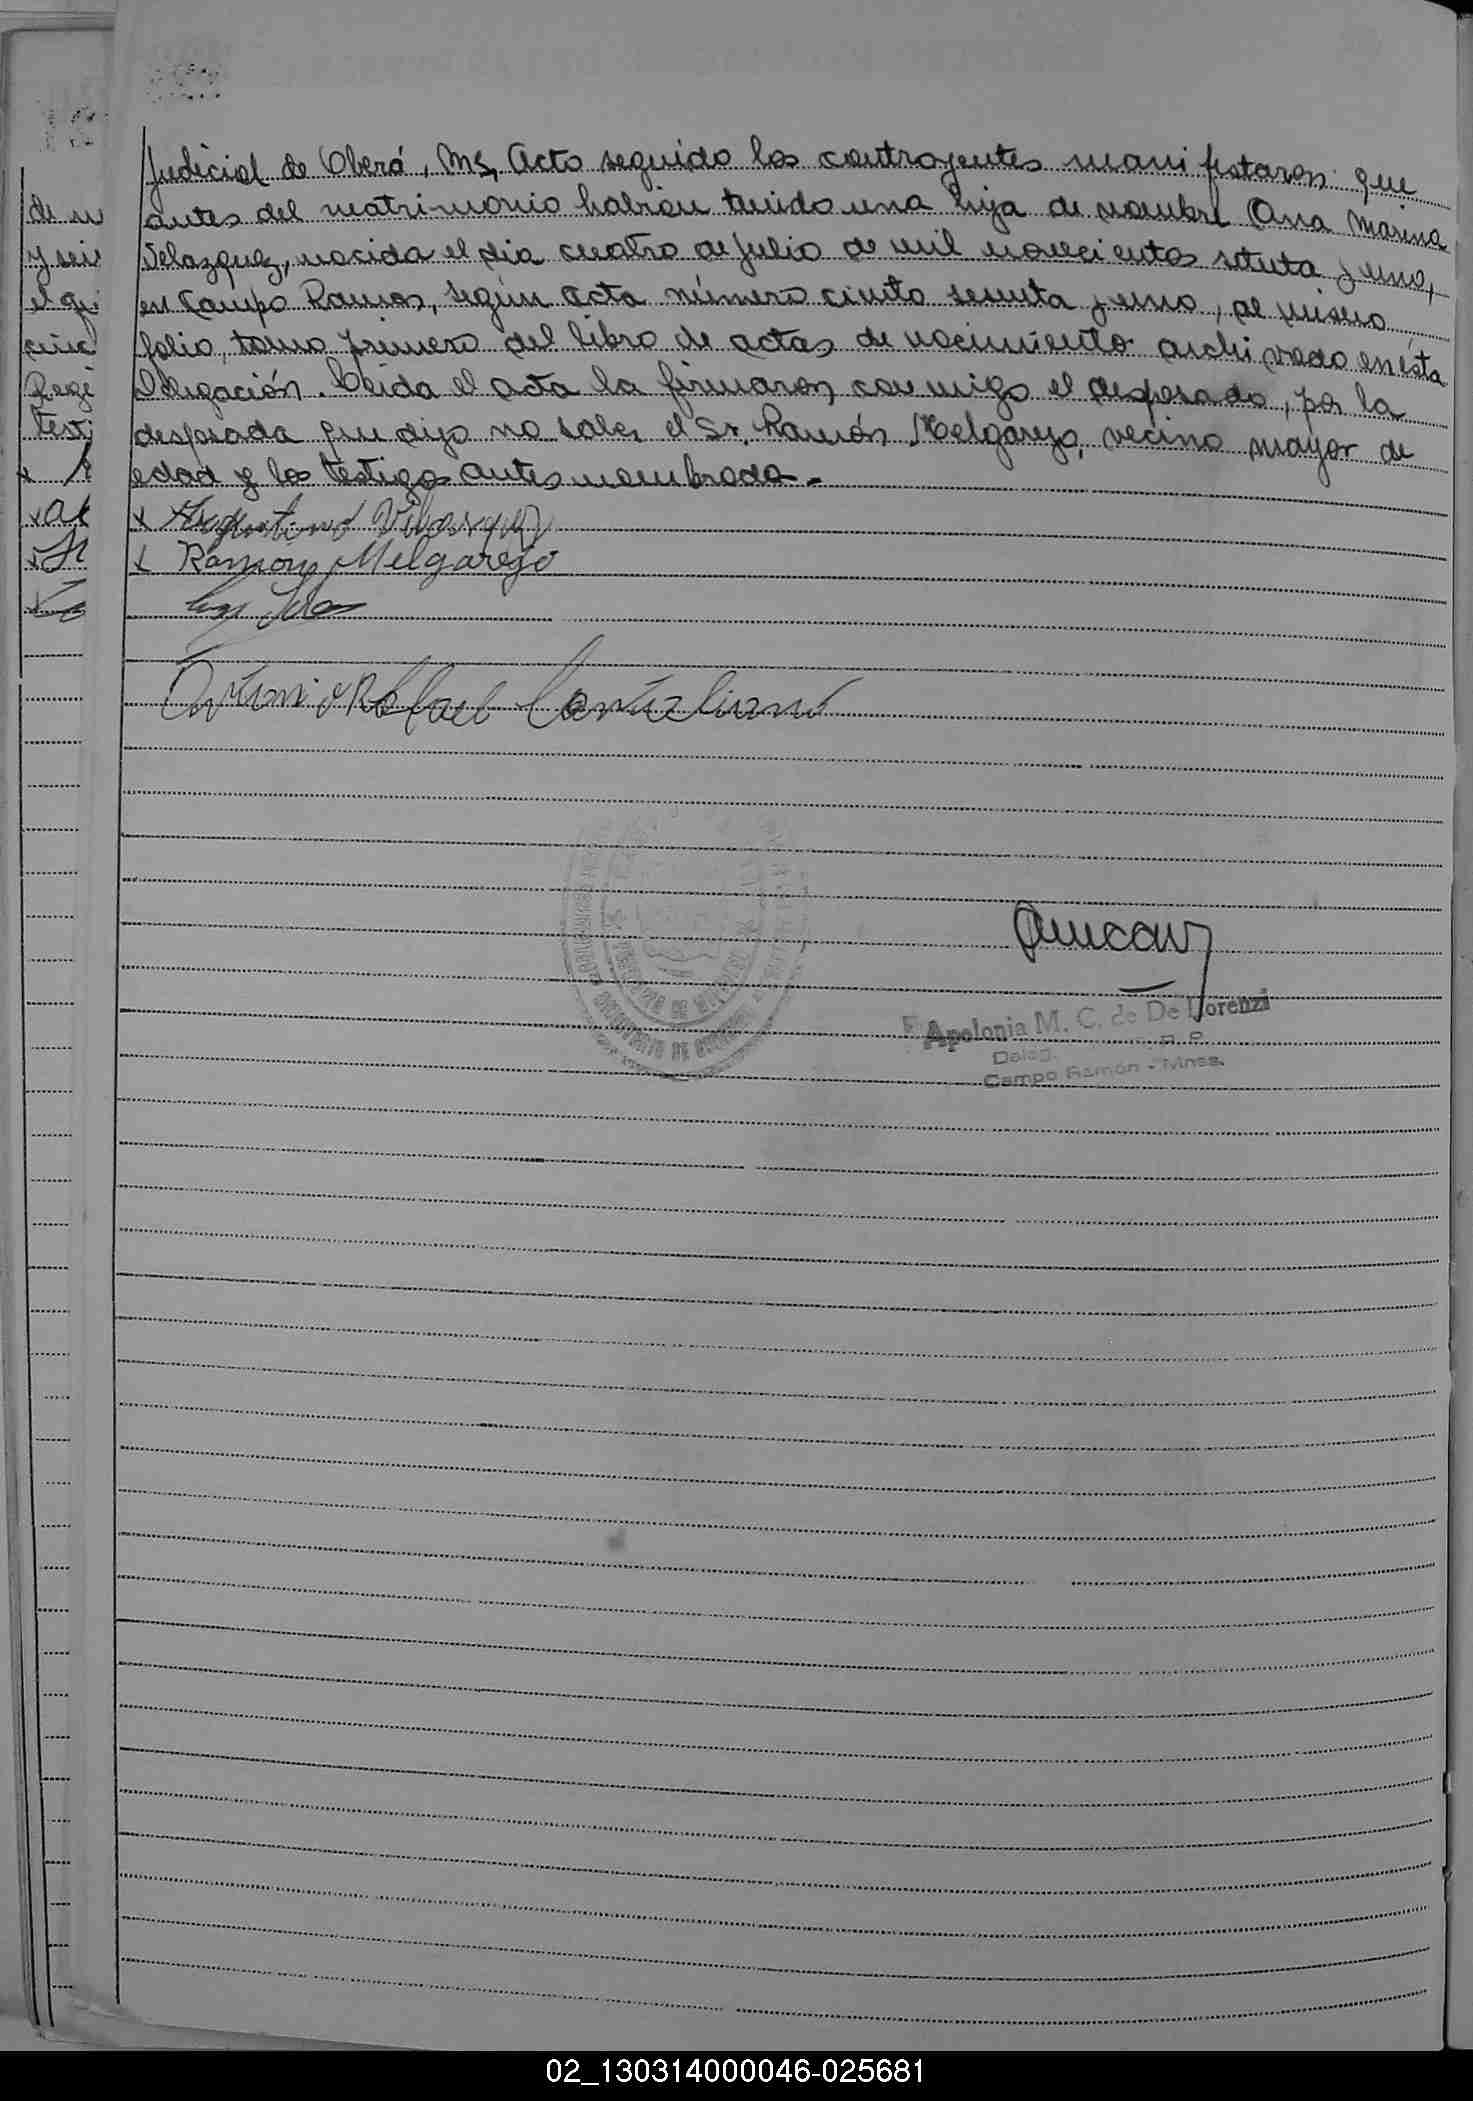 Judicial de Oberá, Ms, Acto seguido los contrayentes manifestaron que
antes del matrimonio habían tenido una hija de nombre Ana Marina
Velazquez, nacida el dia cuatro de Julio de mil novecientos setenta y uno,
en Campo Ramon, según acta número ciento sesenta y uno, al mismo
folio, tomo primero del libro de actas de nacimiento archivado en ésta
Delegación. Leida el acta la firmaron conmigo el desposado, por la
desposada que dijo no saber el Sr. Ramón Melgarejo, vecino mayor de
edad y los testigos antes nombrados.-
x Argentino Velasquez
x Ramon Melgarejo
Antonio Rafael
Apolonia M. C. de De Lorenzi
Deleg. R. P.
Campo Ramón - Mnes.
de m
y seis
el qu
cinc
Regi
testi
x
x
x
x
02_130314000046-025681